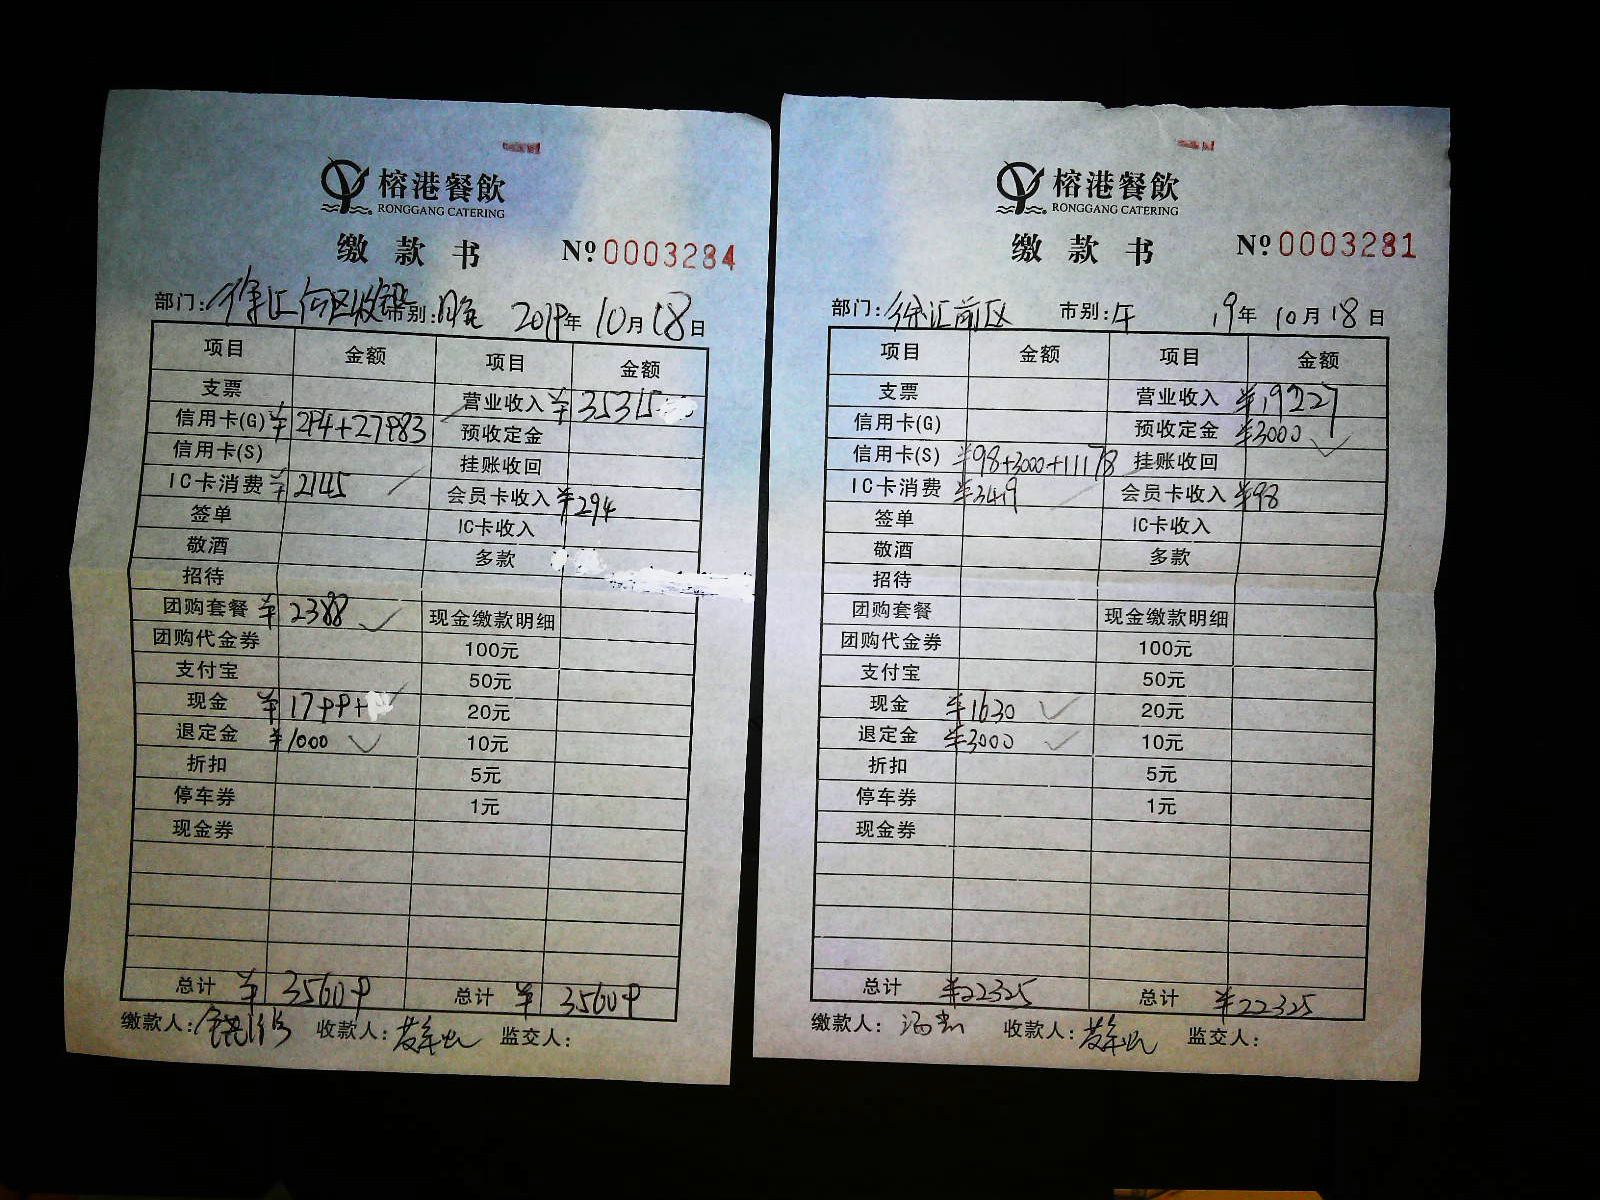 榕港餐飲
RONGGANG CATERING
缴款书 Nº 0003284
部门: 徐汇 区收银 市别: 晚 2019年10月18日
项目 金额 项目 金额
支票 营业收入 ¥35315
信用卡(G) ¥294+27983 预收定金
信用卡(S) 挂账收回
IC卡消费 ¥2145 会员卡收入 ¥294
签单 IC卡收入
敬酒 多款
招待
团购套餐 ¥2388 现金缴款明细
团购代金券 100元
支付宝 50元
现金 ¥1799+ 20元
退定金 ¥1000 10元
折扣 5元
停车券 1元
现金券
总计 ¥35609 总计 ¥35609
缴款人: 收款人: 监交人:
榕港餐飲
RONGGANG CATERING
缴款书 Nº 0003281
部门: 徐汇前区 市别: 午 19年10月18日
项目 金额 项目 金额
支票 营业收入 ¥19227
信用卡(G) 预收定金 ¥3000
信用卡(S) ¥98+3000+11178 挂账收回
IC卡消费 ¥3419 会员卡收入 ¥98
签单 IC卡收入
敬酒 多款
招待
团购套餐 现金缴款明细
团购代金券 100元
支付宝 50元
现金 ¥1630 20元
退定金 ¥3000 10元
折扣 5元
停车券 1元
现金券
总计 ¥22325 总计 ¥22325
缴款人: 收款人: 监交人: